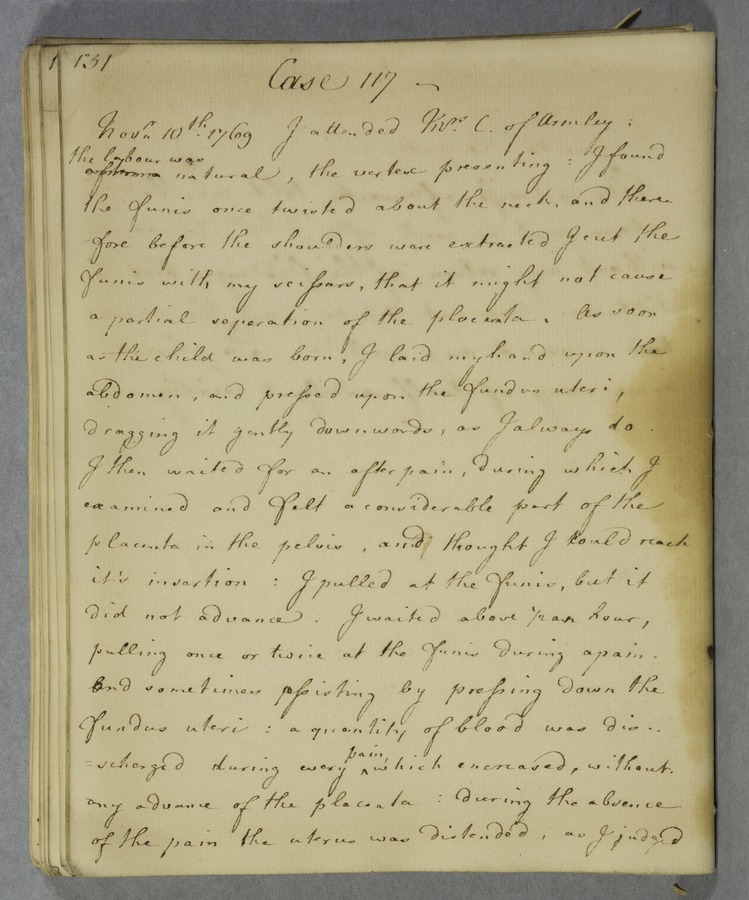 131
Case 117
Novr. 10th. 1769 I attended Mrs. C. of Armley:
the labour was
natural, the vertex presenting: I found
the funis once twisted about the neck, and there-
fore before the shoulders were extracted I cut the
funis with my scissars, that it might not cause
a partial seperation of the placenta. As soon
as the child was born, I laid my hand upon the
abdomen, and pressed upon the fundus uteri,
dragging it gently downwards, as I always do.
I then waited for an after pain, during which I
examined and felt a considerable part of the
placenta in the pelvis, and thought I could reach
it's insertion: I pulled at the funis, but it
did not advance. I waited above 1/2 an hour,
pulling once or twice at the funis during a pain.
And sometimes assisting by pressing down the
fundus uteri: a quantity of blood was dis-
=scharged during every pain, which encreased, without
any advance of the placenta: during the absence
of the pain the uterus was distended, as I judged